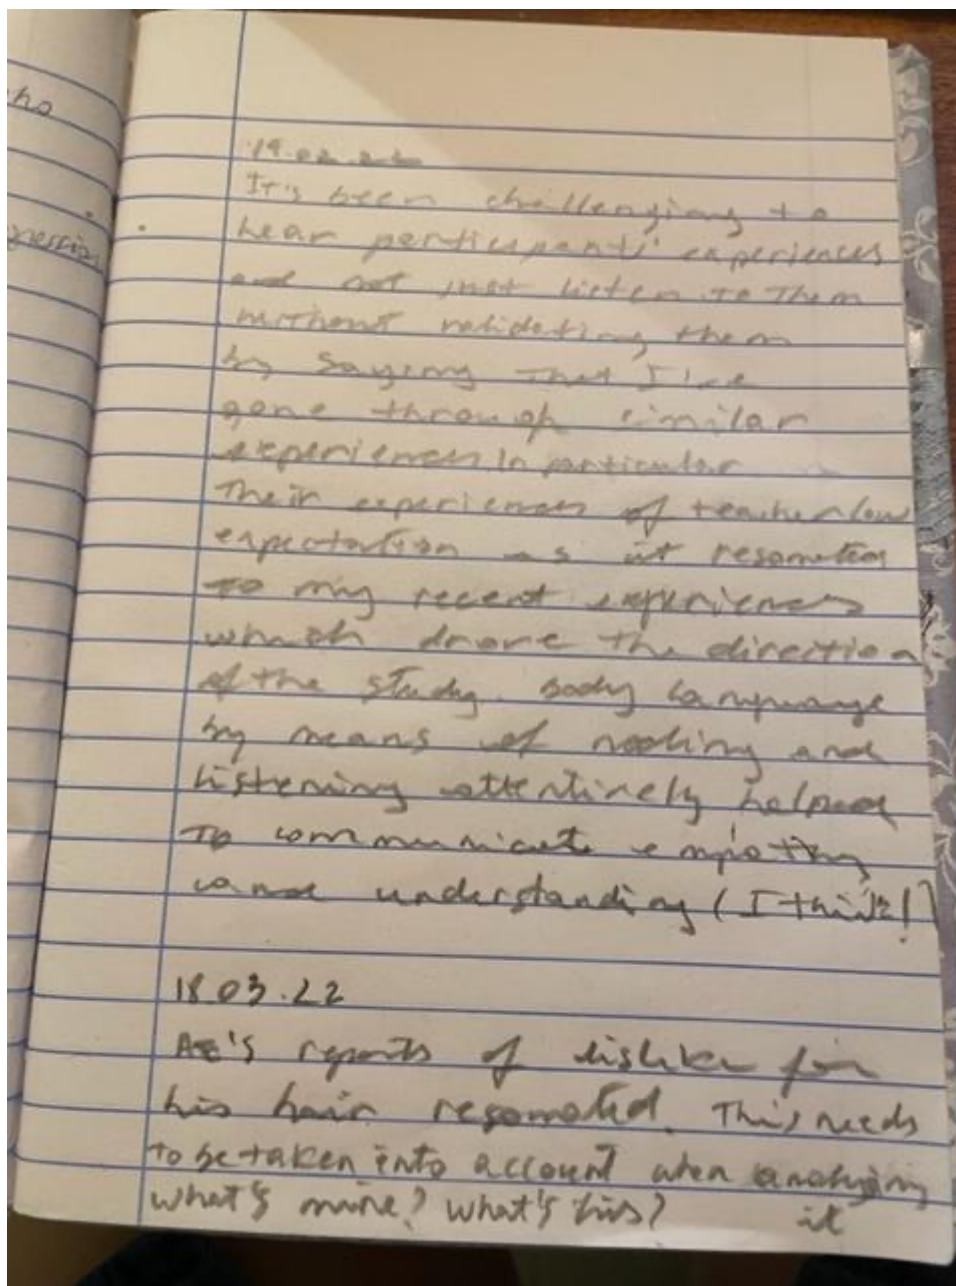 ho
19.02.22
It's been challenging to
hear participants' experiences
and not just listen to them
without validating them
by saying that I've
gone through similar
experiences. In particular
their experiences of teacher low
expectation as it resonated
to my recent experiences
which drove the direction
of the study. Body language
by means of nodding and
listening attentively helped
to communicate empathy
and understanding (I think!)
18.03.22
's reports of dislike for
his hair resonated. This needs
to be taken into account when analysing
it
what's mine? What's his?